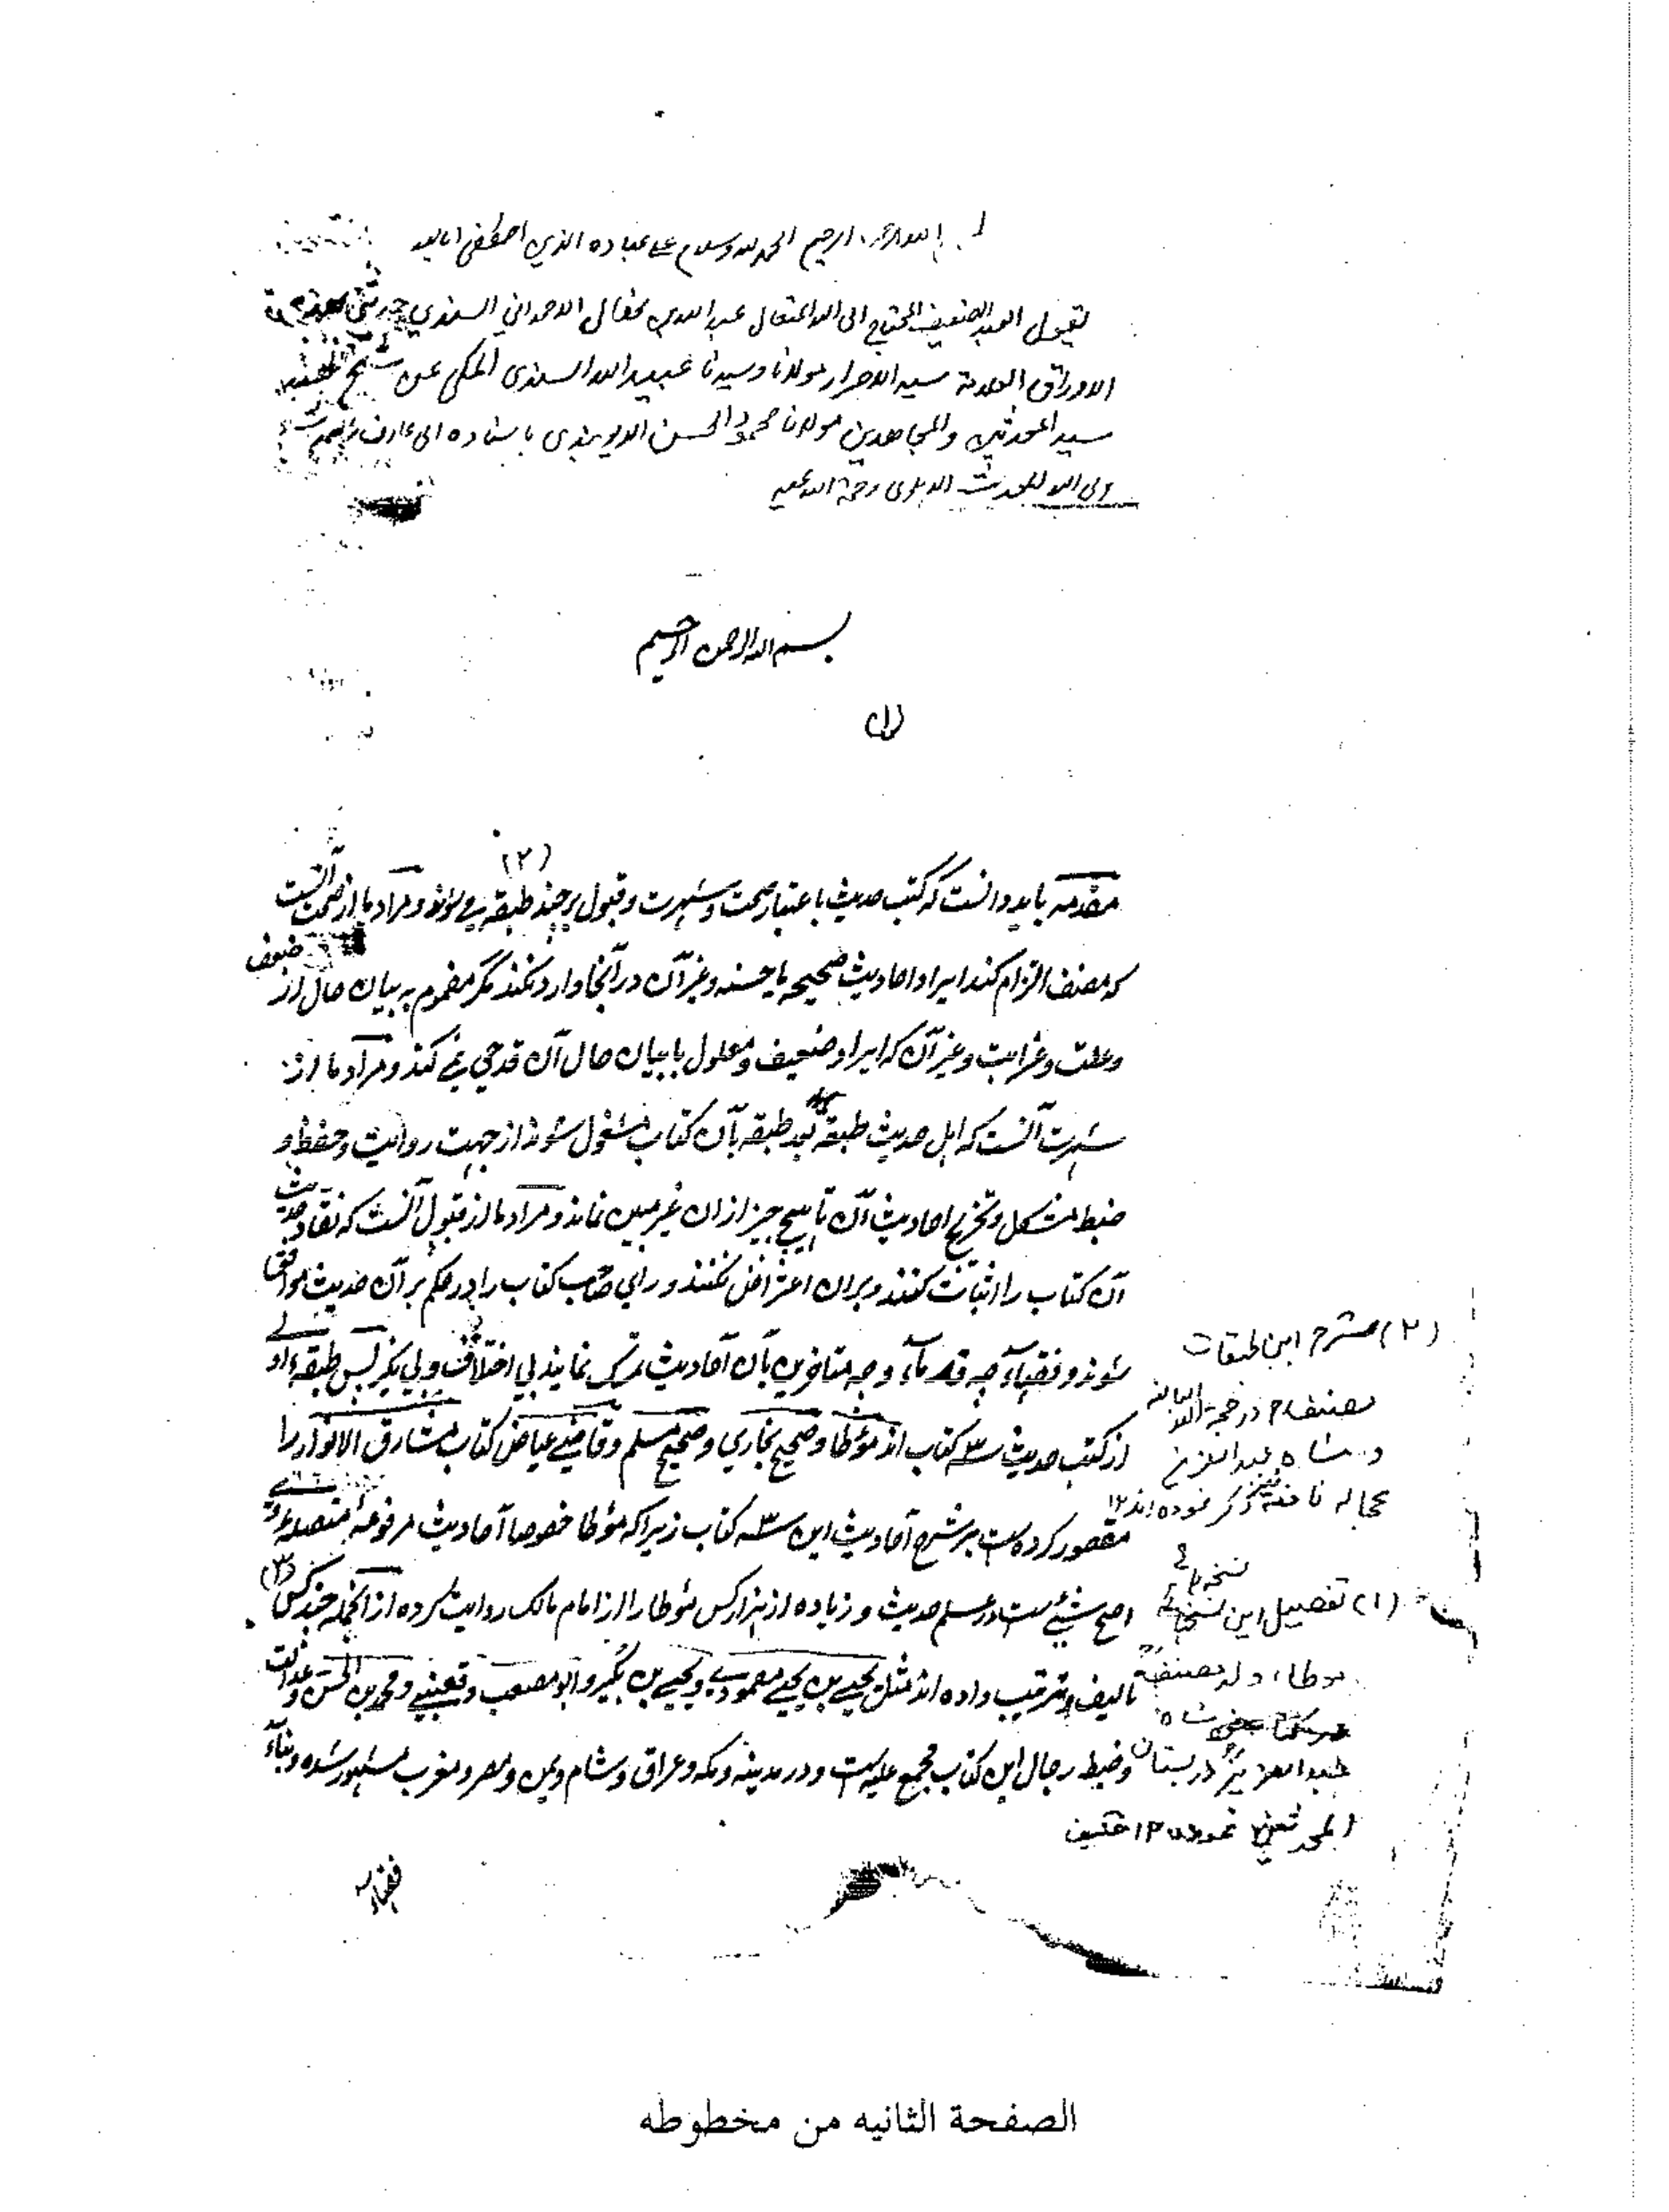 الرحيم الحمد لله وسلام على عباده الذين اصطفى اما بعد
يقول العبد الضعيف المحتاج الى الله المتعال عبد الله بن السندي
الاوراق العلامة سيد الاحرار مولانا وسيدنا عبيد الله السندى المكى عن شيخ
سيد المحدثين والمجاهدين مولانا محمود الحسن الديوبندى باسناده الى
ولى الله المحدث الدهلوى رحمة الله عليه
بسم الله الرحمن الرحيم
(١)
(٢)
مقدمه بايد دانست كه كتب حديث باعتبار صحت وشهرت وقبول بر چند طبقه مے شوند ومراد ما از صحت آنست
كه مصنف التزام كند ايراد احاديث صحيحه يا حسنه وغير آن در آنجا وارد نكند مگر مضموم به بيان حال از ضعف
وعلت وغرابت وغير آن كه ايراد ضعيف ومعلول با بيان حال آن قدحي نمے كند ومراد ما از
شهرت آنست كه اهل حديث طبقة بعد طبقه بآن كتاب مشغول شوند از جهت روايت وحفظ و
ضبط مشكل وتخريج احاديث آن تا هيچ چيز ازان غير مبين نماند ومراد ما از قبول آنست كه نقاد حديث
آن كتاب را اثبات كنند وبران اعتراض نكنند وراى صاحب كتاب را در حكم بر آن حديث موافق
شوند وفقهاء چه قدماء وچه متاخرين بآن احاديث تمسك نمايند بى اختلاف وبى نكير پس طبقه اولے
از كتب حديث سه كتاب اند مؤطا وصحيح بخاري وصحيح مسلم وقاضے عياض كتاب مشارق الانوار را
مقصور كرده است بر شرح احاديث اين سه كتاب زيرا كه مؤطا خصوصا احاديث مرفوعه متصله او
اصح شئے ست در علم حديث وزياده از هزار كس مؤطا را از امام مالك روايت كرده از انجمله چند كس (٣)
تاليف وترتيب داده اند مثل يحيے بن يحيے مصمودے ويحيے بن بكير وابو مصعب وقعنبے ومحمد بن الحسن وعدالت
وضبط رجال اين كتاب مجمع عليه است ودر مدينه ومكه وعراق وشام ويمن ومصر ومغرب مشهور شده وبناء
فقهاء
(٢) شرح اين طبقات
مصنف در حجة الله البالغه
و شاه عبد العزيز
عجاله نافعه ذكر نموده اند ١٢
(١) تفصيل اين نسخهائے
موطا
شاه
عبد العزيز در بستان
المحدثين نموده ١٢
الصفحة الثانيه من مخطوطه